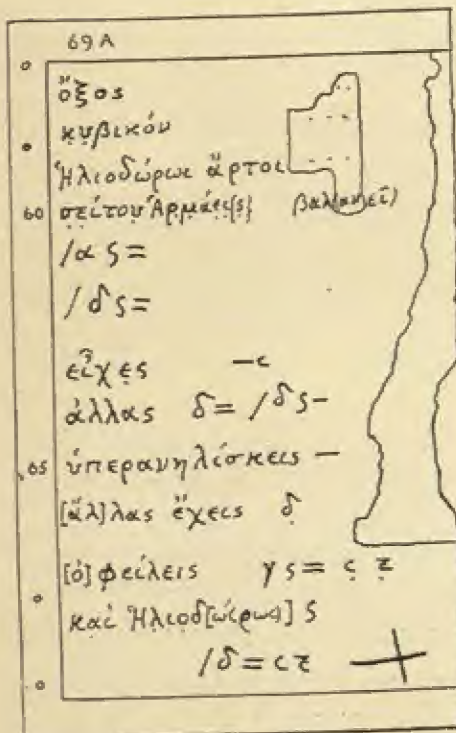 69 A
ὄξος
κυβικόν
Ἡλιοδώρωι ἄρτοι
60 σείτου Ἁρμάει{ς} βαλ(ανεῖ)
/α ϛ =
/δ ϛ =
εἶχες –c
ἄλλας δ = /δ ϛ –
65 ὑπερανηλίσκεις –
[ἄλ]λας ἔχεις δ
[ὀ]φείλεις γ ϛ = c z
καὶ Ἡλιοδ[ώ(ρωι)] ϛ
/δ = c z